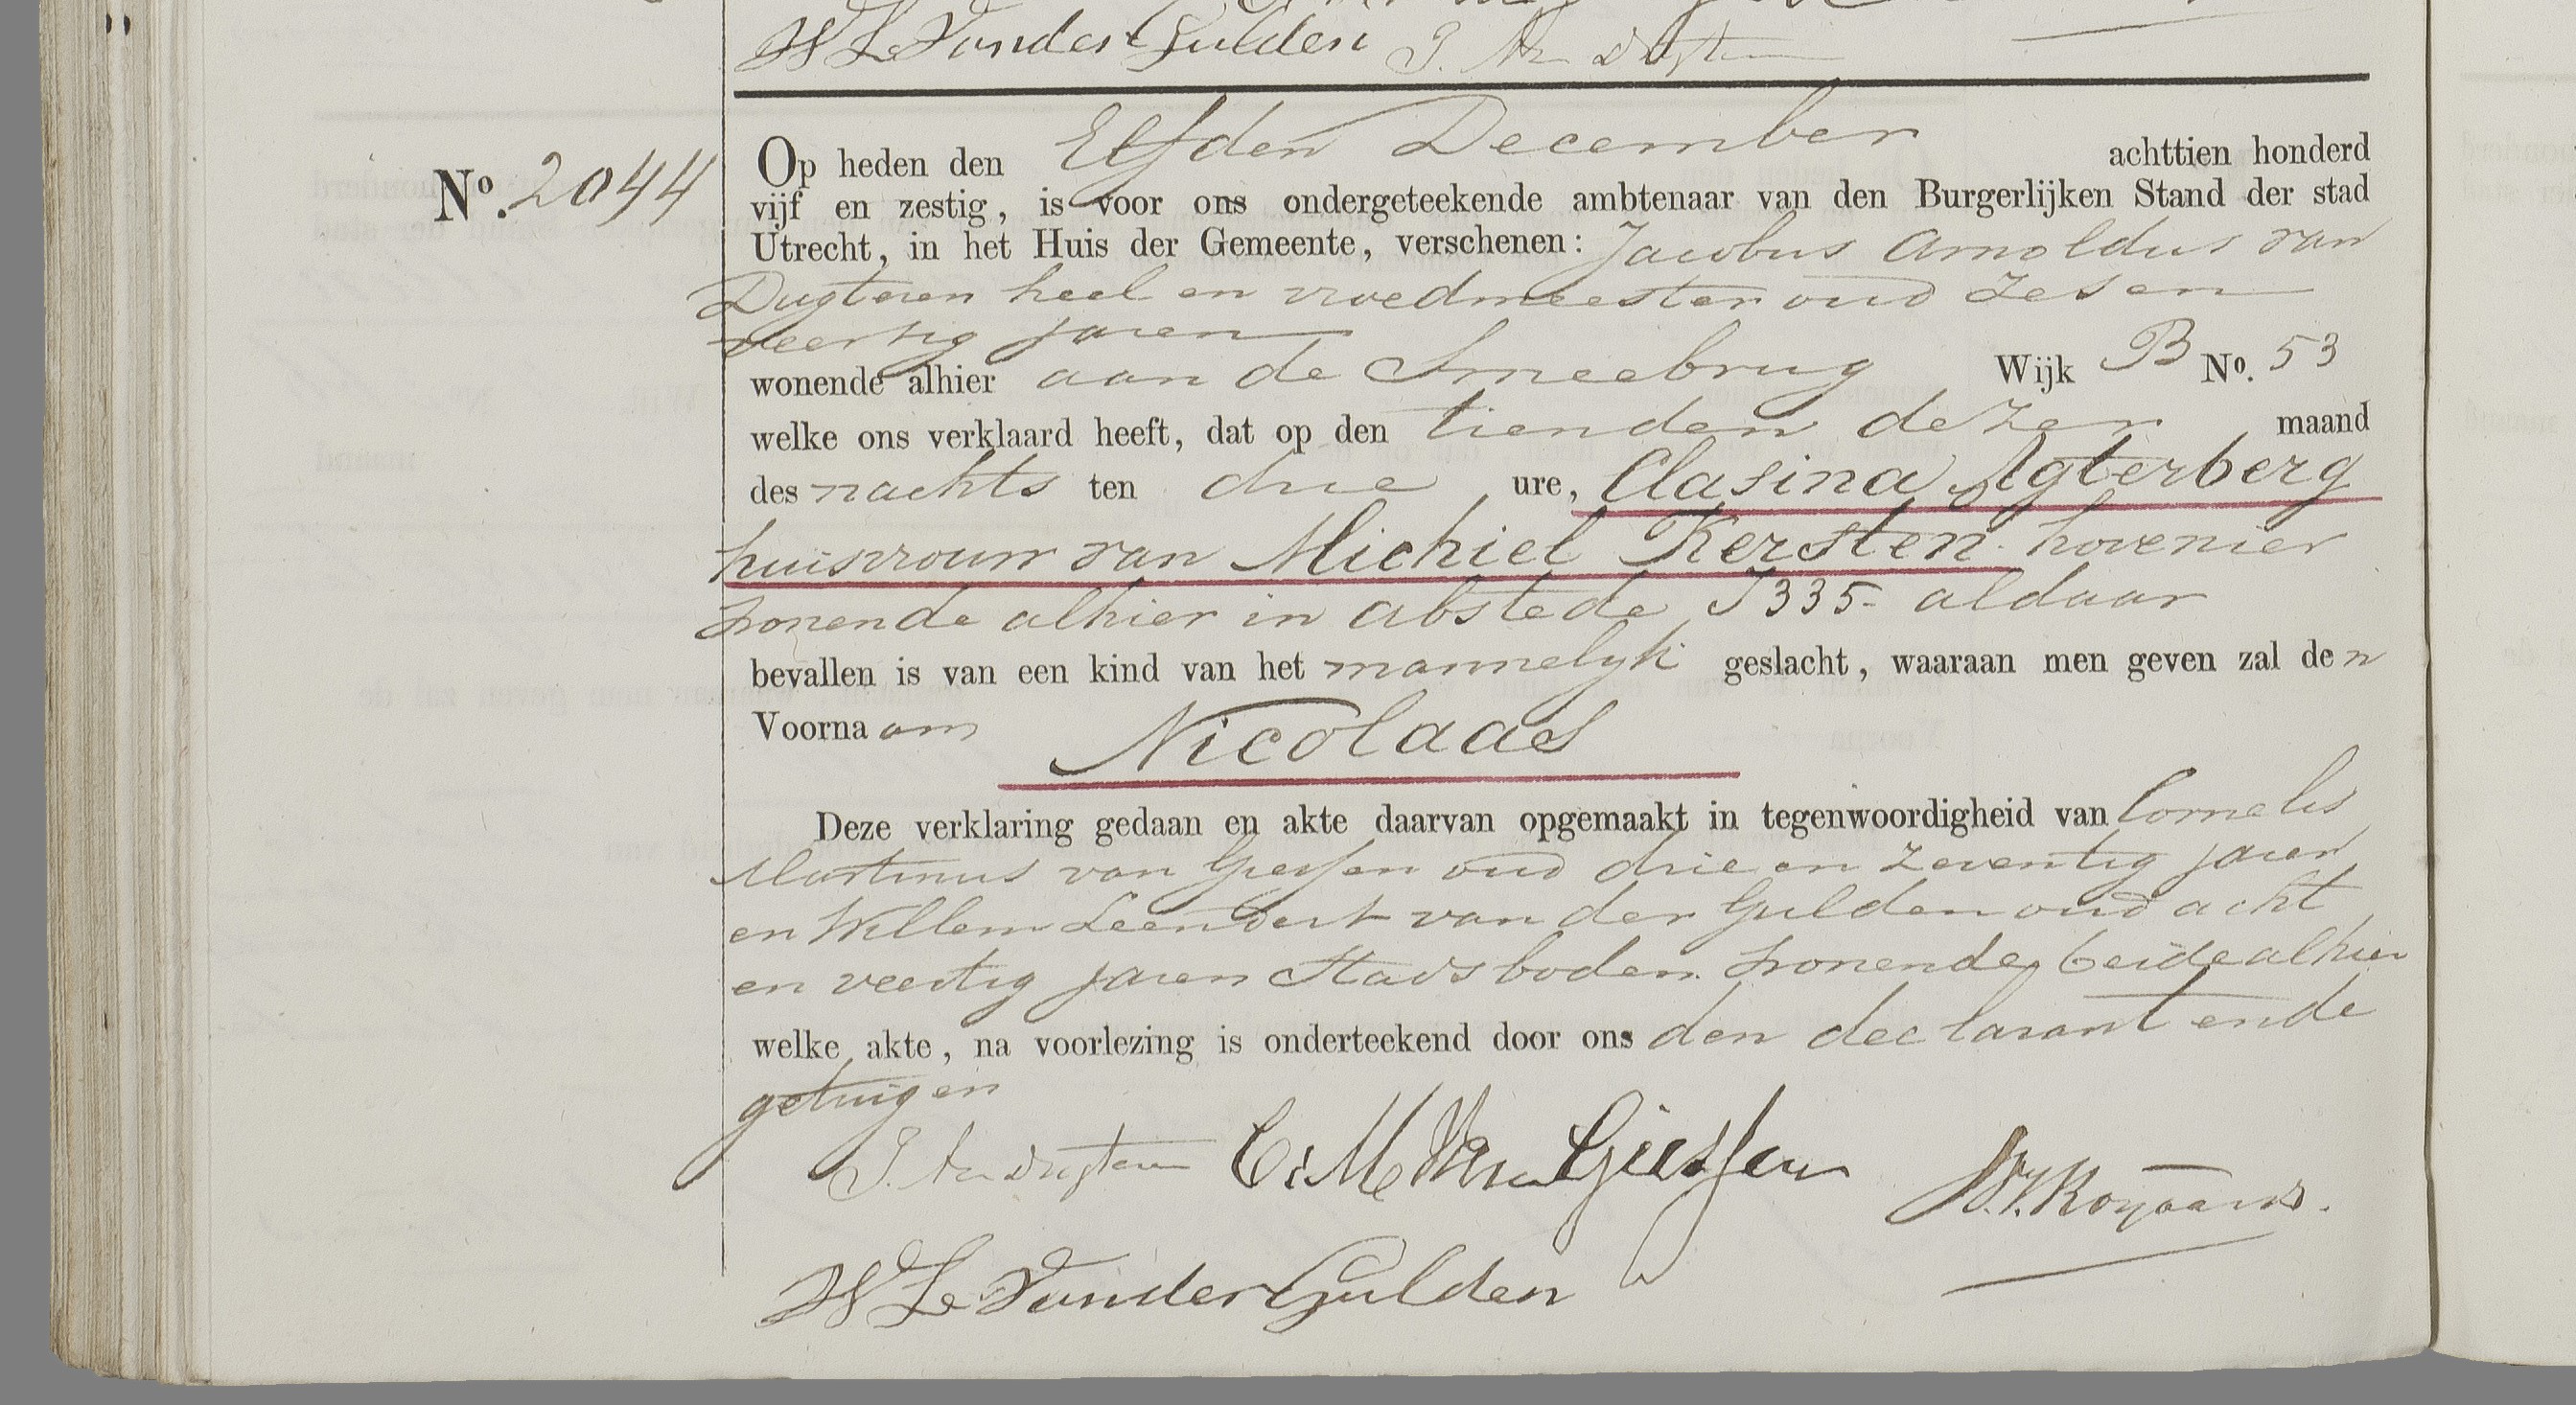 W L Vander Gulden
No. 2044
Op heden den Elfden December achttien honderd
vijf en zestig, is voor ons ondergeteekende ambtenaar van den Burgerlijken Stand der stad
Utrecht, in het Huis der Gemeente, verschenen: Jacobus Arnoldus van
Dugteren heel en vroedmeester oud zes en
veertig jaren
wonende alhier aan de Smeebrug Wijk B No. 53
welke ons verklaard heeft, dat op den tienden dezer maand
des nachts ten drie ure, Clasina Agterberg
huisvrouw van Michiel Kersten hovenier
wonende alhier in Abstede J 335 aldaar
bevallen is van een kind van het mannelyk geslacht, waaraan men geven zal den
Voornaam Nicolaas
Deze verklaring gedaan en akte daarvan opgemaakt in tegenwoordigheid van Cornelis
Martinus van Giessen oud drie en zeventig jaren
en Willem Leendert van der Gulden oud acht
en veertig jaren Stadsboden wonende beide alhier
welke akte, na voorlezing is onderteekend door ons den declarant en de
getuigen
C: M Van Giessen
W L Vander Gulden